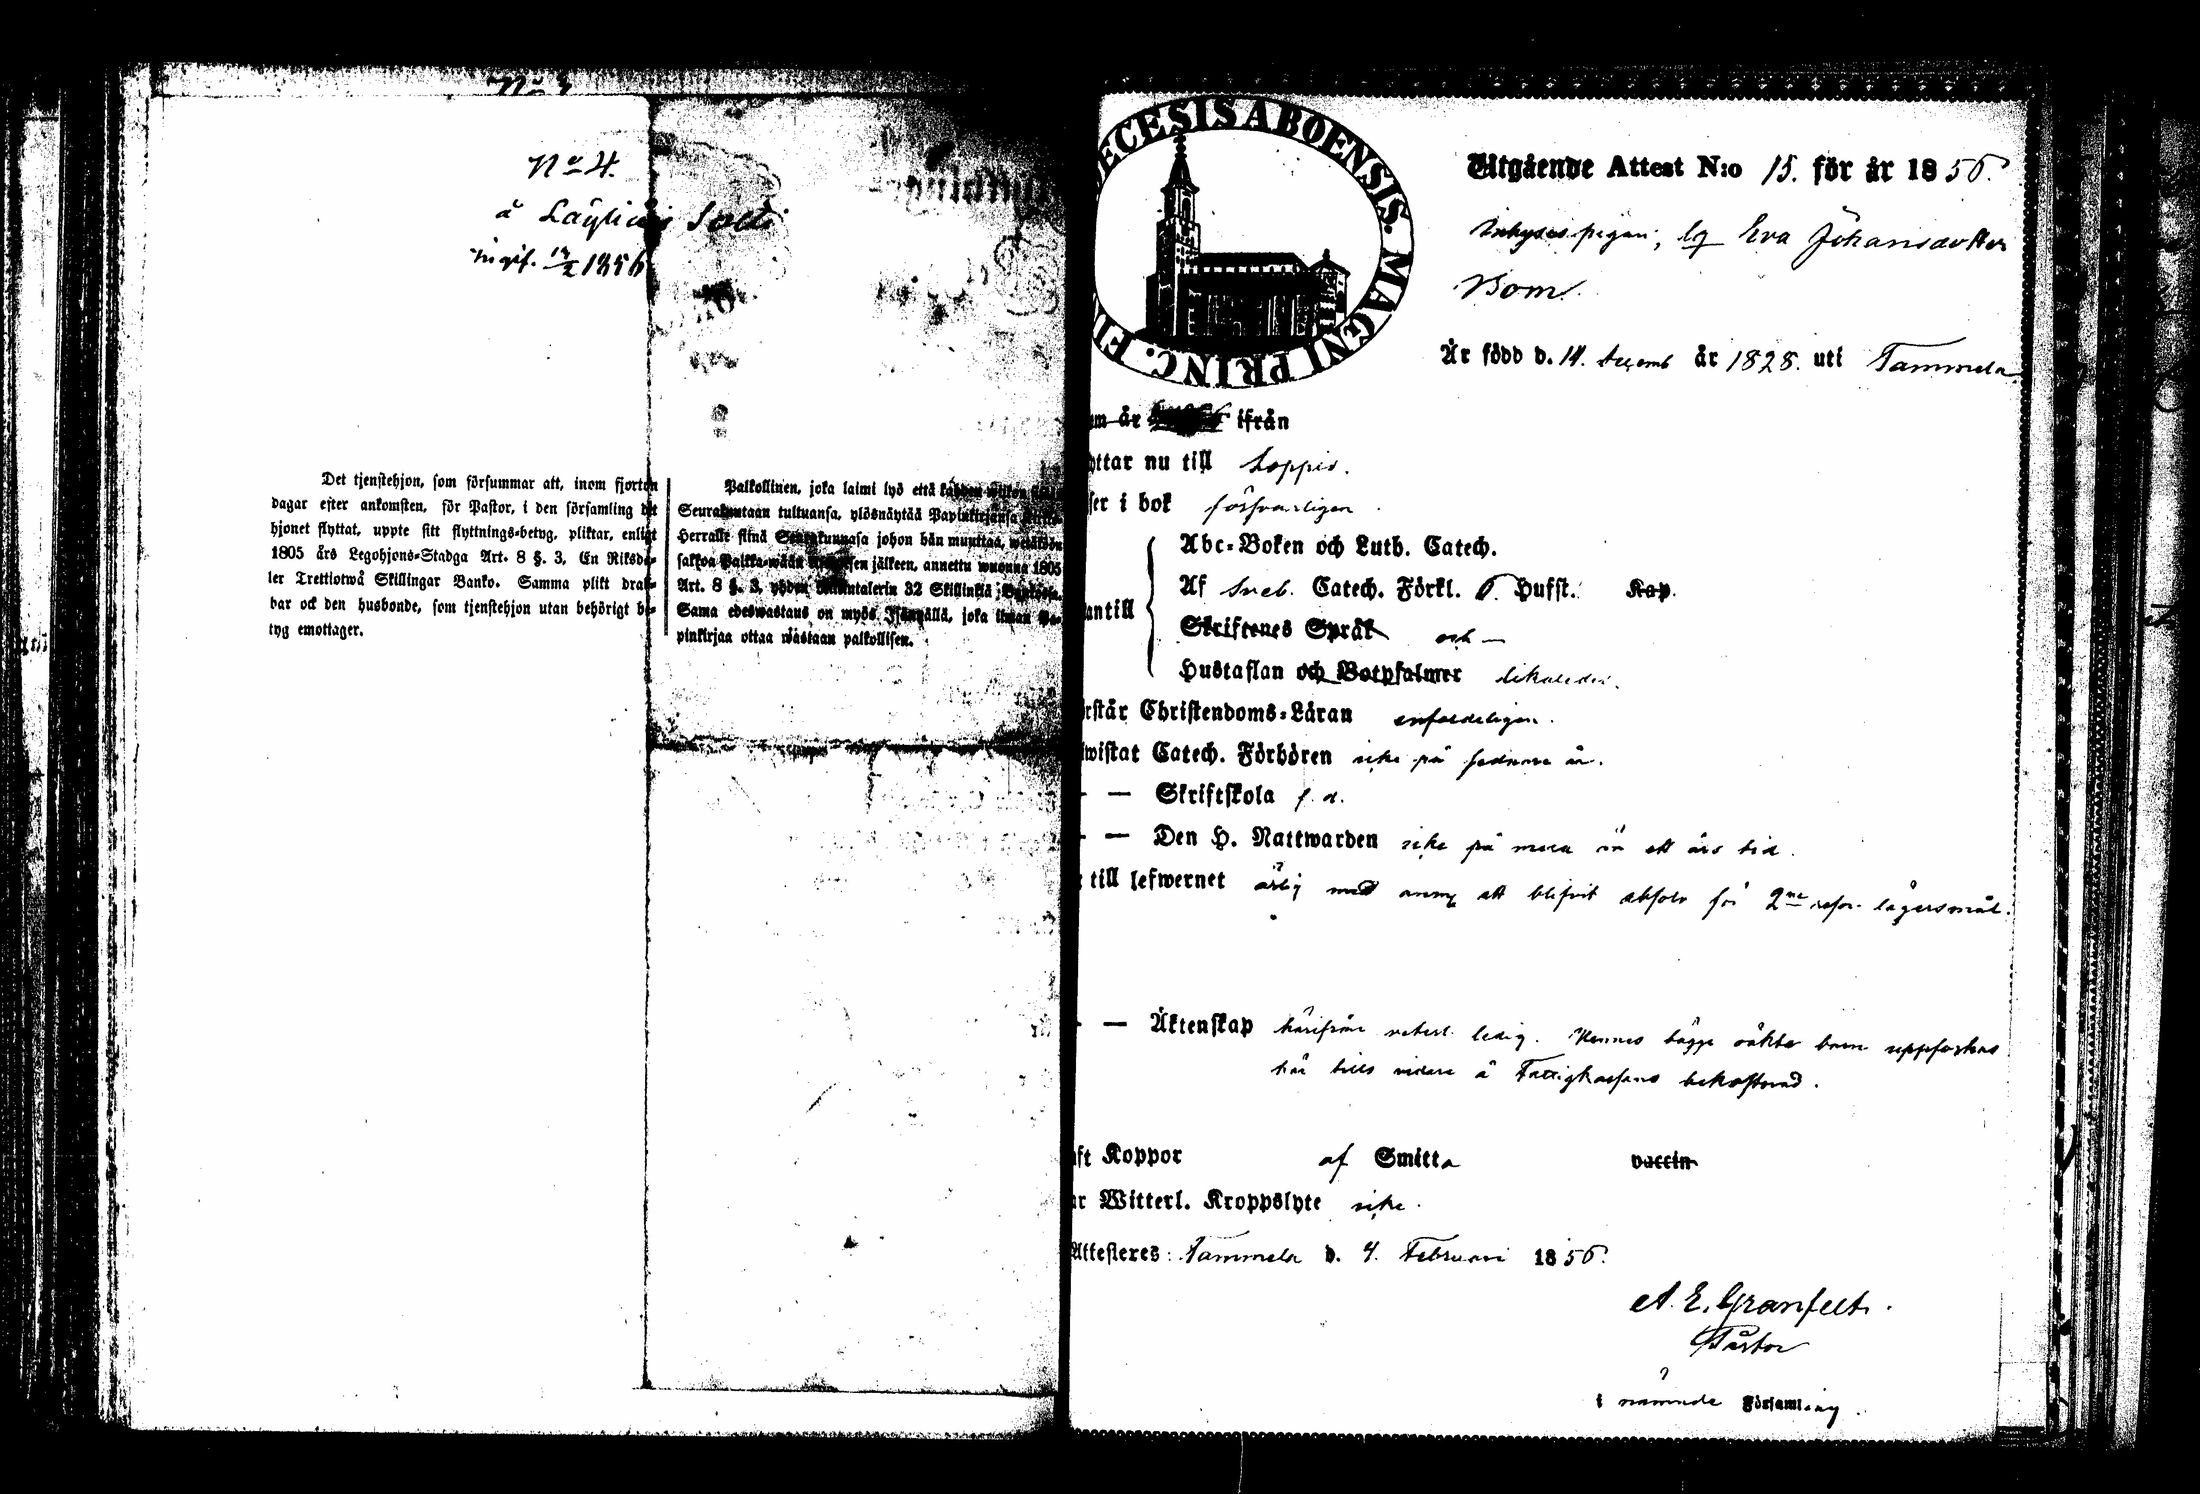 No 4.
å Läyliäis
ingif. 17/2 1856
Det tjenstehjon, som försummar att, inom fjorton
dagar efter ankomsten, för Pastor, i den församling dit
hjonet flyttat, uppte sitt flyttnings-betyg, pliktar, enligt
1805 års Legohjons-Stadga Art. 8 §. 3, En Riksda-
ler Trettiotwå Skillingar Banko. Samma plikt drab-
bar ock den husbonde, som tjenstehjon utan behörigt be-
tyg emottager.
Palkollinen, joka laimi lyö että kahden wiikon
Seurakuntaan tultuansa, ylösnäytää Papinkirjansa
Herralle siinä Seurakunnasa johon hän muuttaa, wetäkön
sakkoa Palkka-wään jälkeen, annettu wuonna 1805
Art. 8 §. 3, yhden 32 Skillinkiä Bankosa.
Sama edeswastaus on myös Isännällä, joka ilman Pa-
pinkirjaa ottaa wastaan palkollisen.
ECESIS ABOENSIS. MAGNI PRINC. FI
Utgående Attest N:o 15. för år 1856.
Inhyses pigan, lg Eva Johansdotter
Bom.
Är född d. 14. Decemb år 1828. uti Tammela
om år ifrån
yttar nu till Loppis.
ser i bok försvarligen
Abc-Boken och Luth. Catech.
antill Af Sveb. Catech. Förkl. 6 Hufst. Kap.
Skriftenes Språk och —
Hustaflan och Botpsalmer likaledes.
rstår Christendoms-Läran enfaldeligen.
iwistat Catech. Förhören icke på sednare år.
— — Skriftskola f. d.
— — Den H. Nattwarden icke på mera än ett års tid.
t till lefwernet ärlig med anm att blifvit absolv för 2ne resor lägersmål.
— — Äktenskap härifrån veterl. ledig. Hennes bägge oäkta barn uppfostras
här tills vidare å Fattigkassans bekostnad.
ft Koppor af Smitta vaccin
ar Witterl. Kroppslyte icke.
Attesteres: Tammela d. 4. Februari 1856.
A. E. Granfelt.
Pastor
i nämnde Församling.